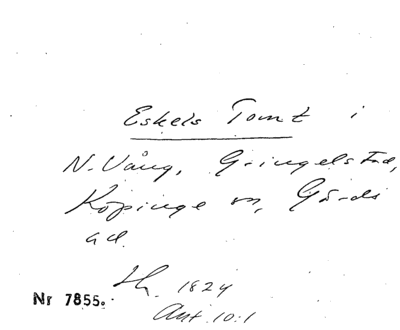 Eskels Tomt i
N. Vång, Gringelstad,
Köpinge sn, Gärds
hd.
Lh. 1824
Nr 7855.
Akt 10:1